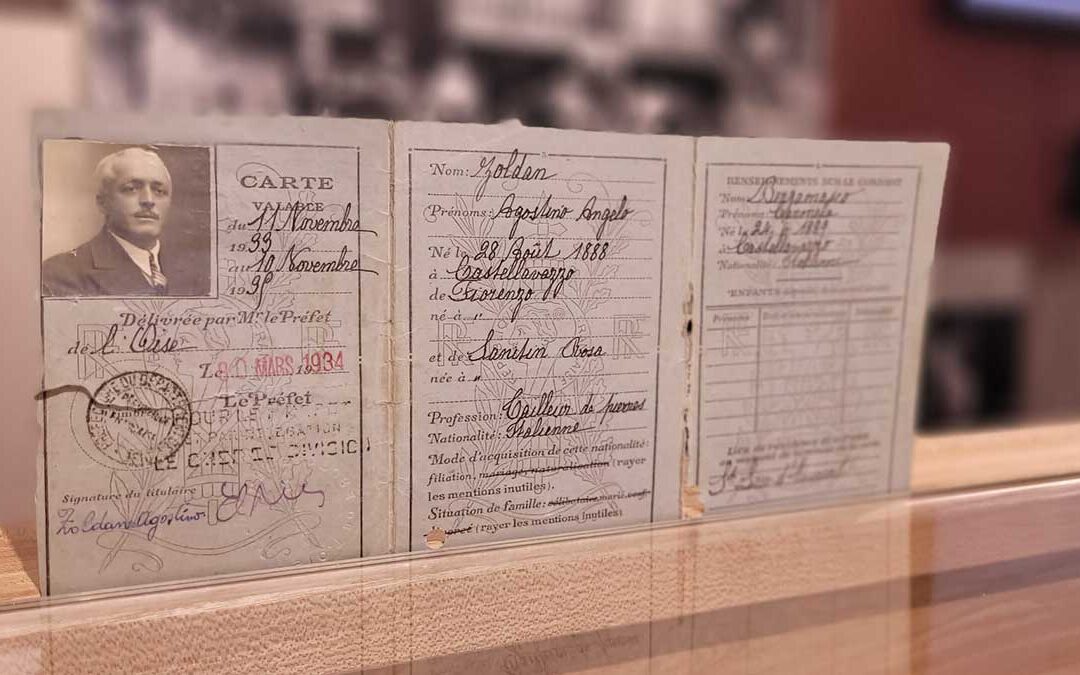 CARTE
VALABLE
du 11 Novembre
1933
au 10 Novembre
193
Délivrée par Mr le Préfet
de l'Oise
Le 20 MARS 1934
Le Préfet
POUR LE PRÉFET
PAR DÉLÉGATION
LE CHEF DE DIVISION
Signature du titulaire
Zoldan Agostino
Nom: Zoldan
Prénoms: Agostino Angelo
Né le 28 Août 1888
à Castellavazzo
de Fiorenzo
né à "
et de Sanitin Rosa
née à "
Profession: Tailleur de pierres
Nationalité: Italienne
Mode d'acquisition de cette nationalité:
filiation, mariage, naturalisation (rayer
les mentions inutiles).
Situation de famille: célibataire, marié, veuf,
divorcé (rayer les mentions inutiles)
RENSEIGNEMENTS SUR LE CONJOINT
Nom:
Prénoms:
Né le 24 1889
à Castellavazzo
Nationalité: Italienne
ENFANTS
Prénoms